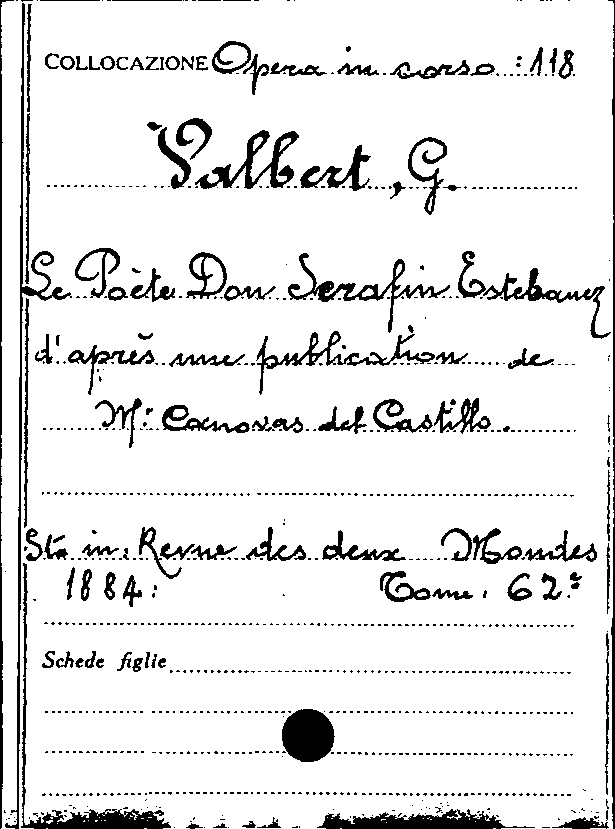 COLLOCAZIONE Opera in corso : 118
Valbert, G.
Le Poète Don Serafin Estebanez
d'après une publication de
Mr. Canovas del Castillo.
Sta in: Revue des deux Mondes
1884: Tome. 62.e
Schede figlie